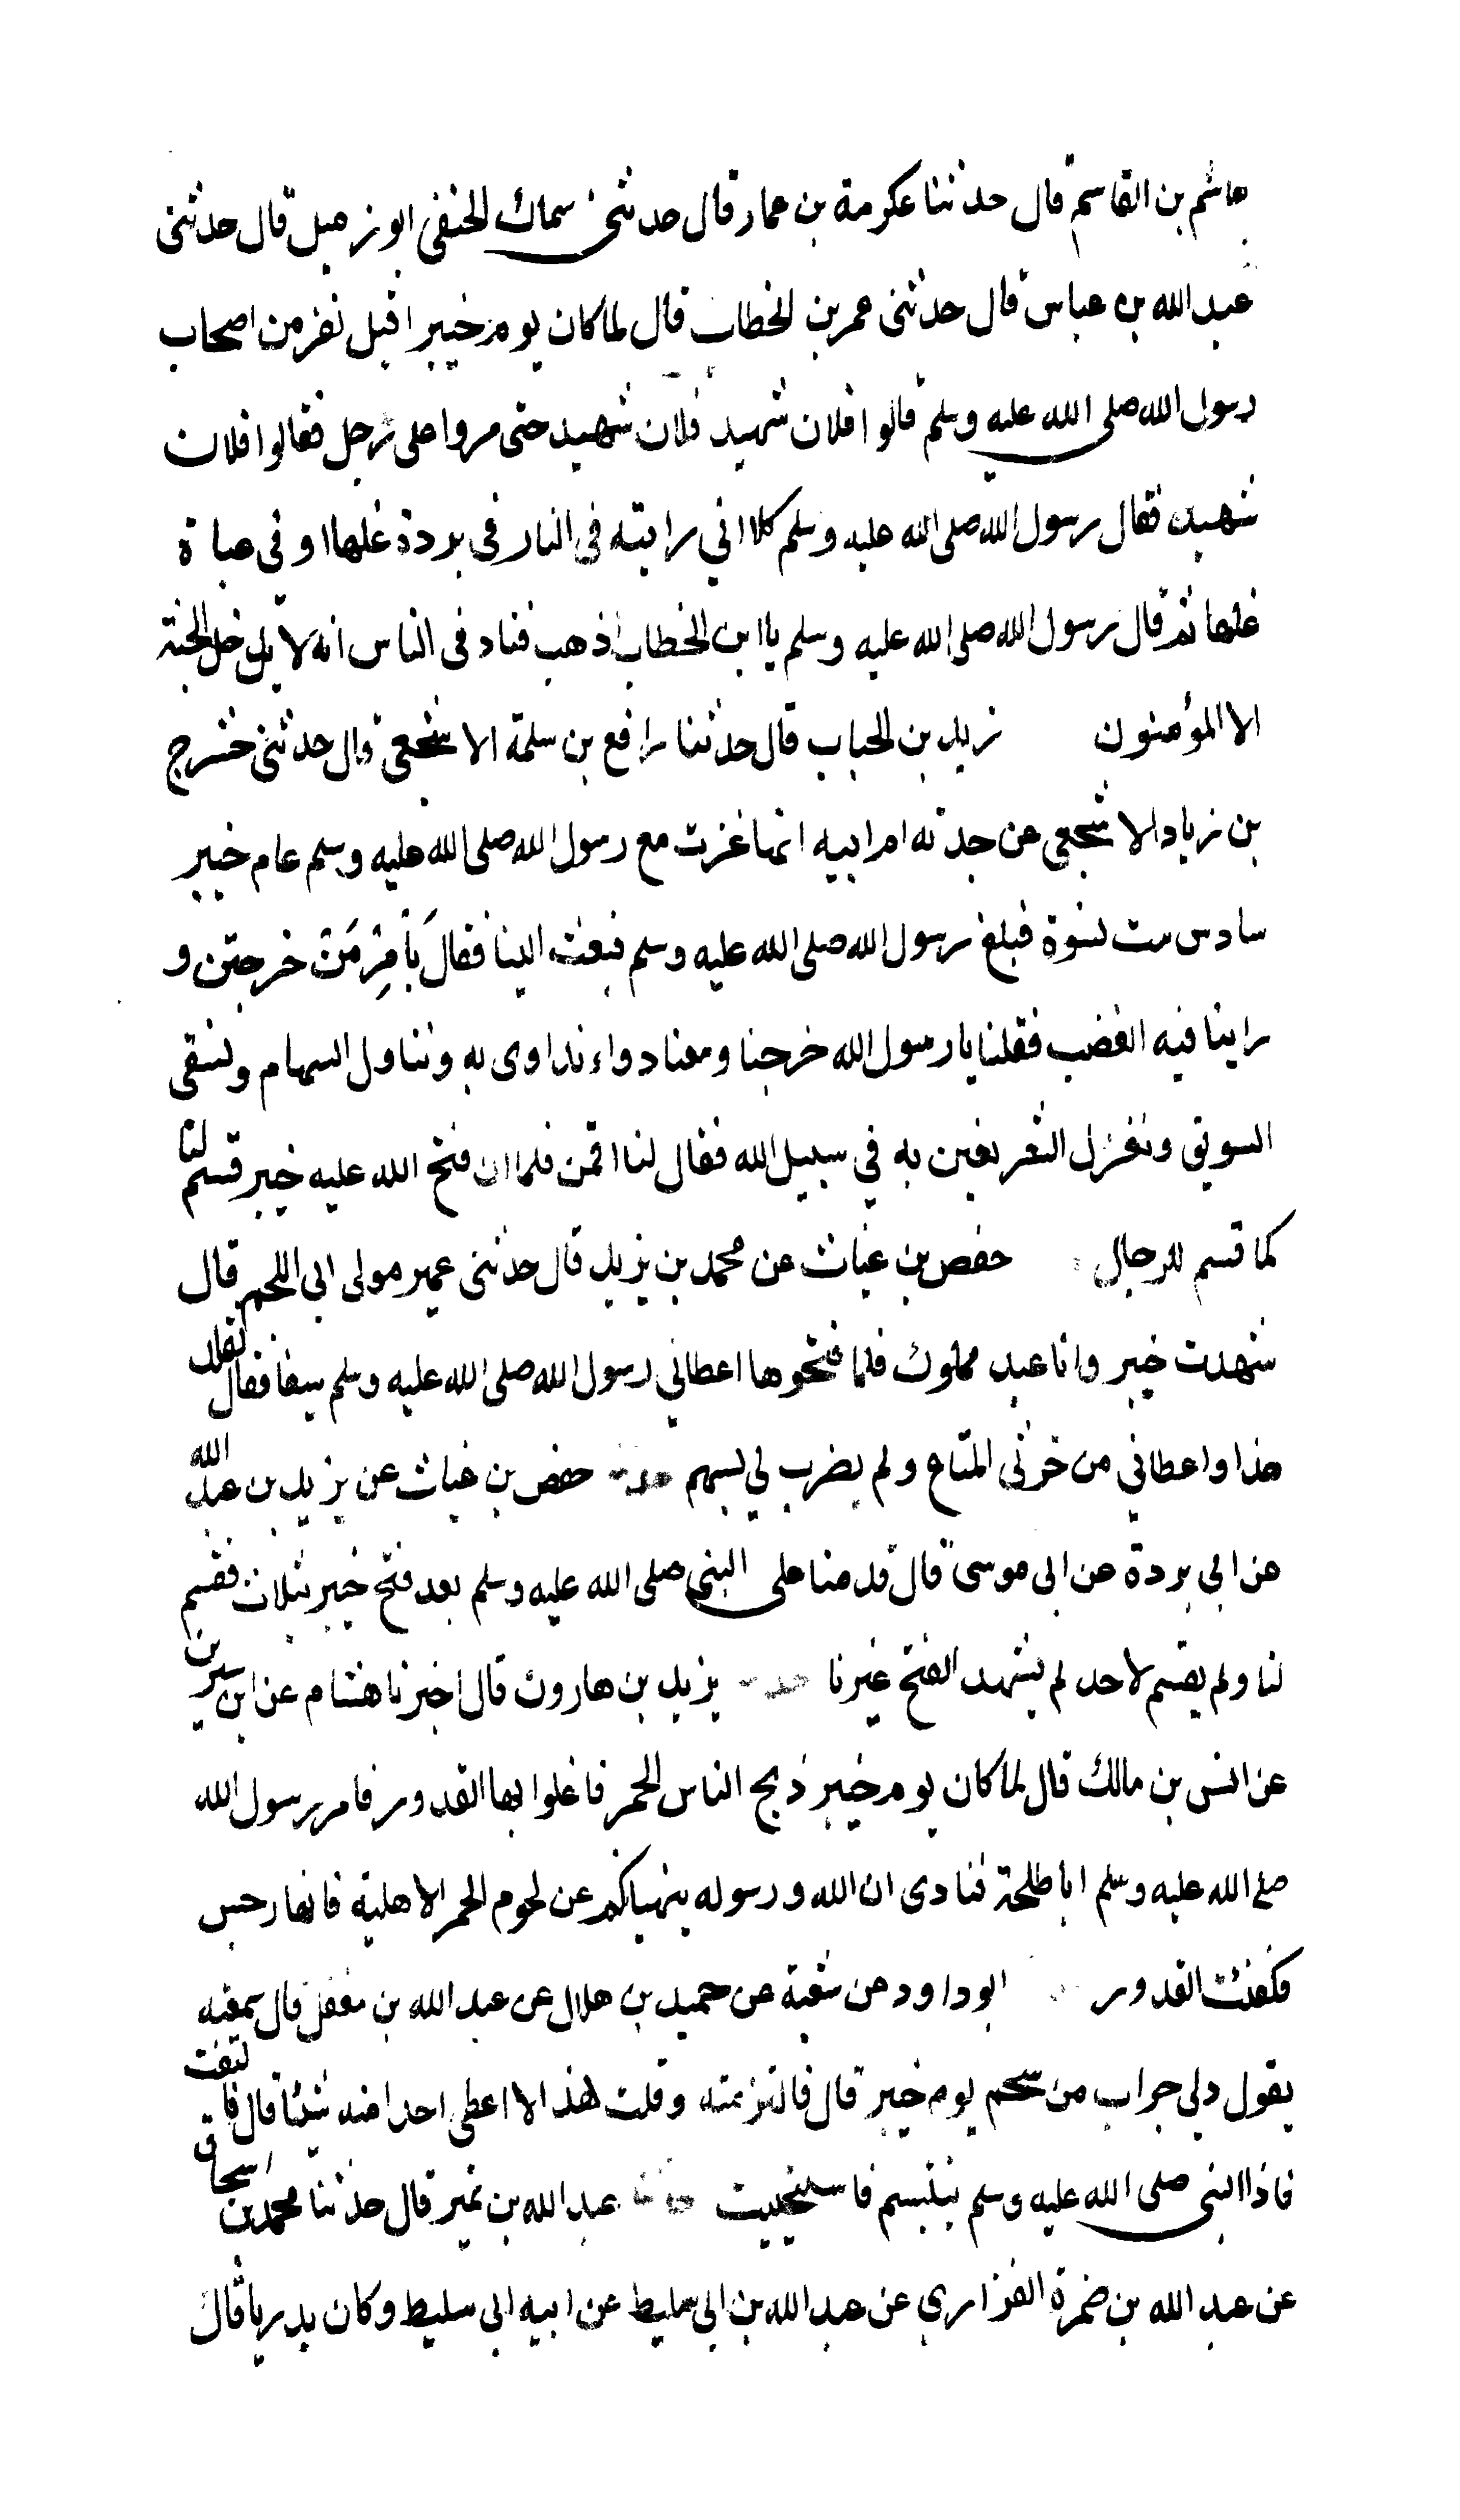 هاشم بن القاسم قال حدثنا عكرمة بن عمار قال حدثنى سماك الحنفى ابو زميل قال حدثنى
عبد الله بن عباس قال حدثنى عمر بن الخطاب قال لما كان يوم خيبر اقبل نفر من اصحاب
رسول الله صلى الله عليه وسلم قالوا فلان شهيد فلان شهيد حتى مروا على رجل فقالوا فلان
شهيد فقال رسول الله صلى الله عليه وسلم كلا اني رايته فى النار فى بردة غلها او فى عباة
غلها ثم قال رسول الله صلى الله عليه وسلم يا ابن الخطاب اذهب فناد فى الناس انه لا يدخل الجنة
الا المؤمنون زيد بن الحباب قال حدثنا رافع بن سلمة الاشجعى قال حدثنى حشرج
بن زياد الاشجعى عن جدته ام ابيه انها غزت مع رسول الله صلى الله عليه وسلم عام خيبر
سادس ست نسوة فبلغ رسول الله صلى الله عليه وسلم فبعث الينا فقال بأمر من خرجتن و
راينا فيه الغضب فقلنا يا رسول الله خرجنا ومعنا دواء نداوى به ونناول السهام ونسقى
السويق ونغزل الشعر نعين به في سبيل الله فقال لنا اقمن فلما ان فتح الله عليه خيبر قسم لنا
كما قسم للرجال حفص بن غياث عن محمد بن يزيد قال حدثنى عمير مولى ابى اللحم قال
شهدت خيبر وانا عبد مملوك فلما فتحوها اعطاني رسول الله صلى الله عليه وسلم سيفا فقال تقلد
هذا واعطاني من خرثى المتاع ولم يضرب لي بسهم حفص بن غياث عن بريد بن عبد الله
عن ابي بردة عن ابى موسى قال قدمنا على النبي صلى الله عليه وسلم بعد فتح خيبر بثلاث فقسم
لنا ولم يقسم لاحد لم يشهد الفتح غيرنا يزيد بن هارون قال اخبرنا هشام عن ابن سيرين
عن انس بن مالك قال لما كان يوم خيبر ذبح الناس الحمر فاغلوا بها القدور فامر رسول الله
صلى الله عليه وسلم ابا طلحة فنادى ان الله ورسوله ينهياكم عن لحوم الحمر الاهلية فانها رجس
فكفئت القدور ابو داود عن شعبة عن حميد بن هلال عن عبد الله بن مغفل قال سمعته
يقول دلى جراب من شحم يوم خيبر قال فالتزمته وقلت هذا لا اعطى احدا منه شيئا قال فالتفت
فاذا النبى صلى الله عليه وسلم يتبسم فاستحييت عبد الله بن نمير قال حدثنا محمد بن اسحاق
عن عبد الله بن ضمرة الفزاري عن عبد الله بن ابي سليط عن ابيه ابى سليط وكان بدريا قال